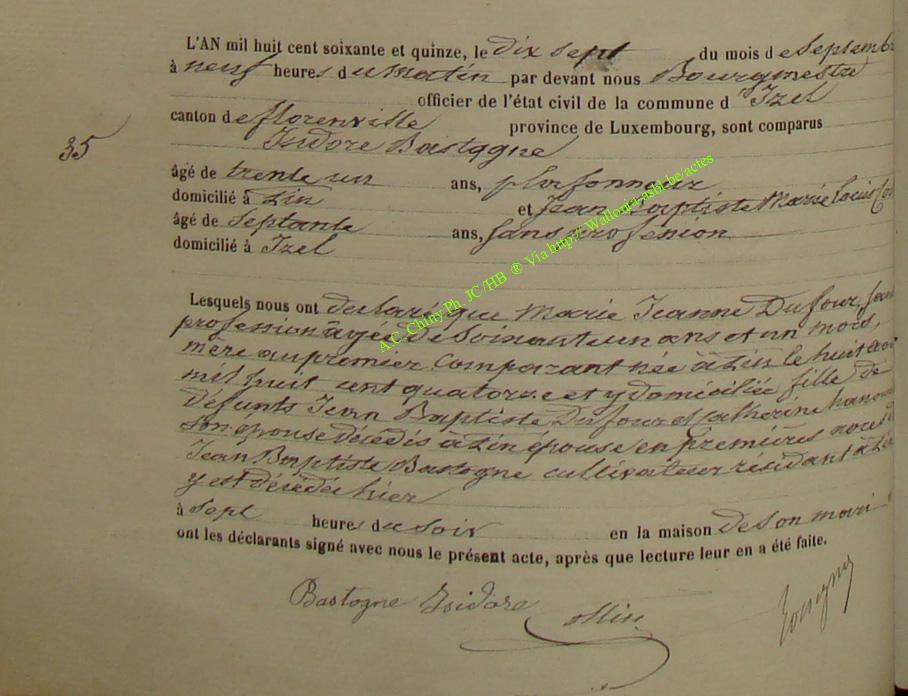 L'AN mil huit cent soixante et quinze, le dix sept du mois de Septembre
à neuf heures du matin par devant nous Bourgmestre
officier de l'état civil de la commune d'Izel
canton de florenville province de Luxembourg, sont comparus
35
Isidore Bastogne
âgé de trente un ans, plafonneur
domicilié à Pin et Jean Baptiste Marie Louis
âgé de Septante ans, sans profession
domicilié à Izel
Lesquels nous ont déclaré que Marie Jeanne Dufour, sans
profession agée de Soixante un ans et un mois,
mère au premier comparant née à Pin le huit août
mil huit cent quatorze et y domiciliée fille de
défunts Jean Baptiste Dufour et Catherine
son épouse décédés à Pin épouse en premières noces de
Jean Baptiste Bastogne cultivateur résidant à Pin
y est décédée hier
à sept heures du soir en la maison de son mari
ont les déclarants signé avec nous le présent acte, après que lecture leur en a été faite.
Bastogne Isidore
A.C. Chiny Ph. JC/HB ® Via http://Wallonia-asbl.be/actes